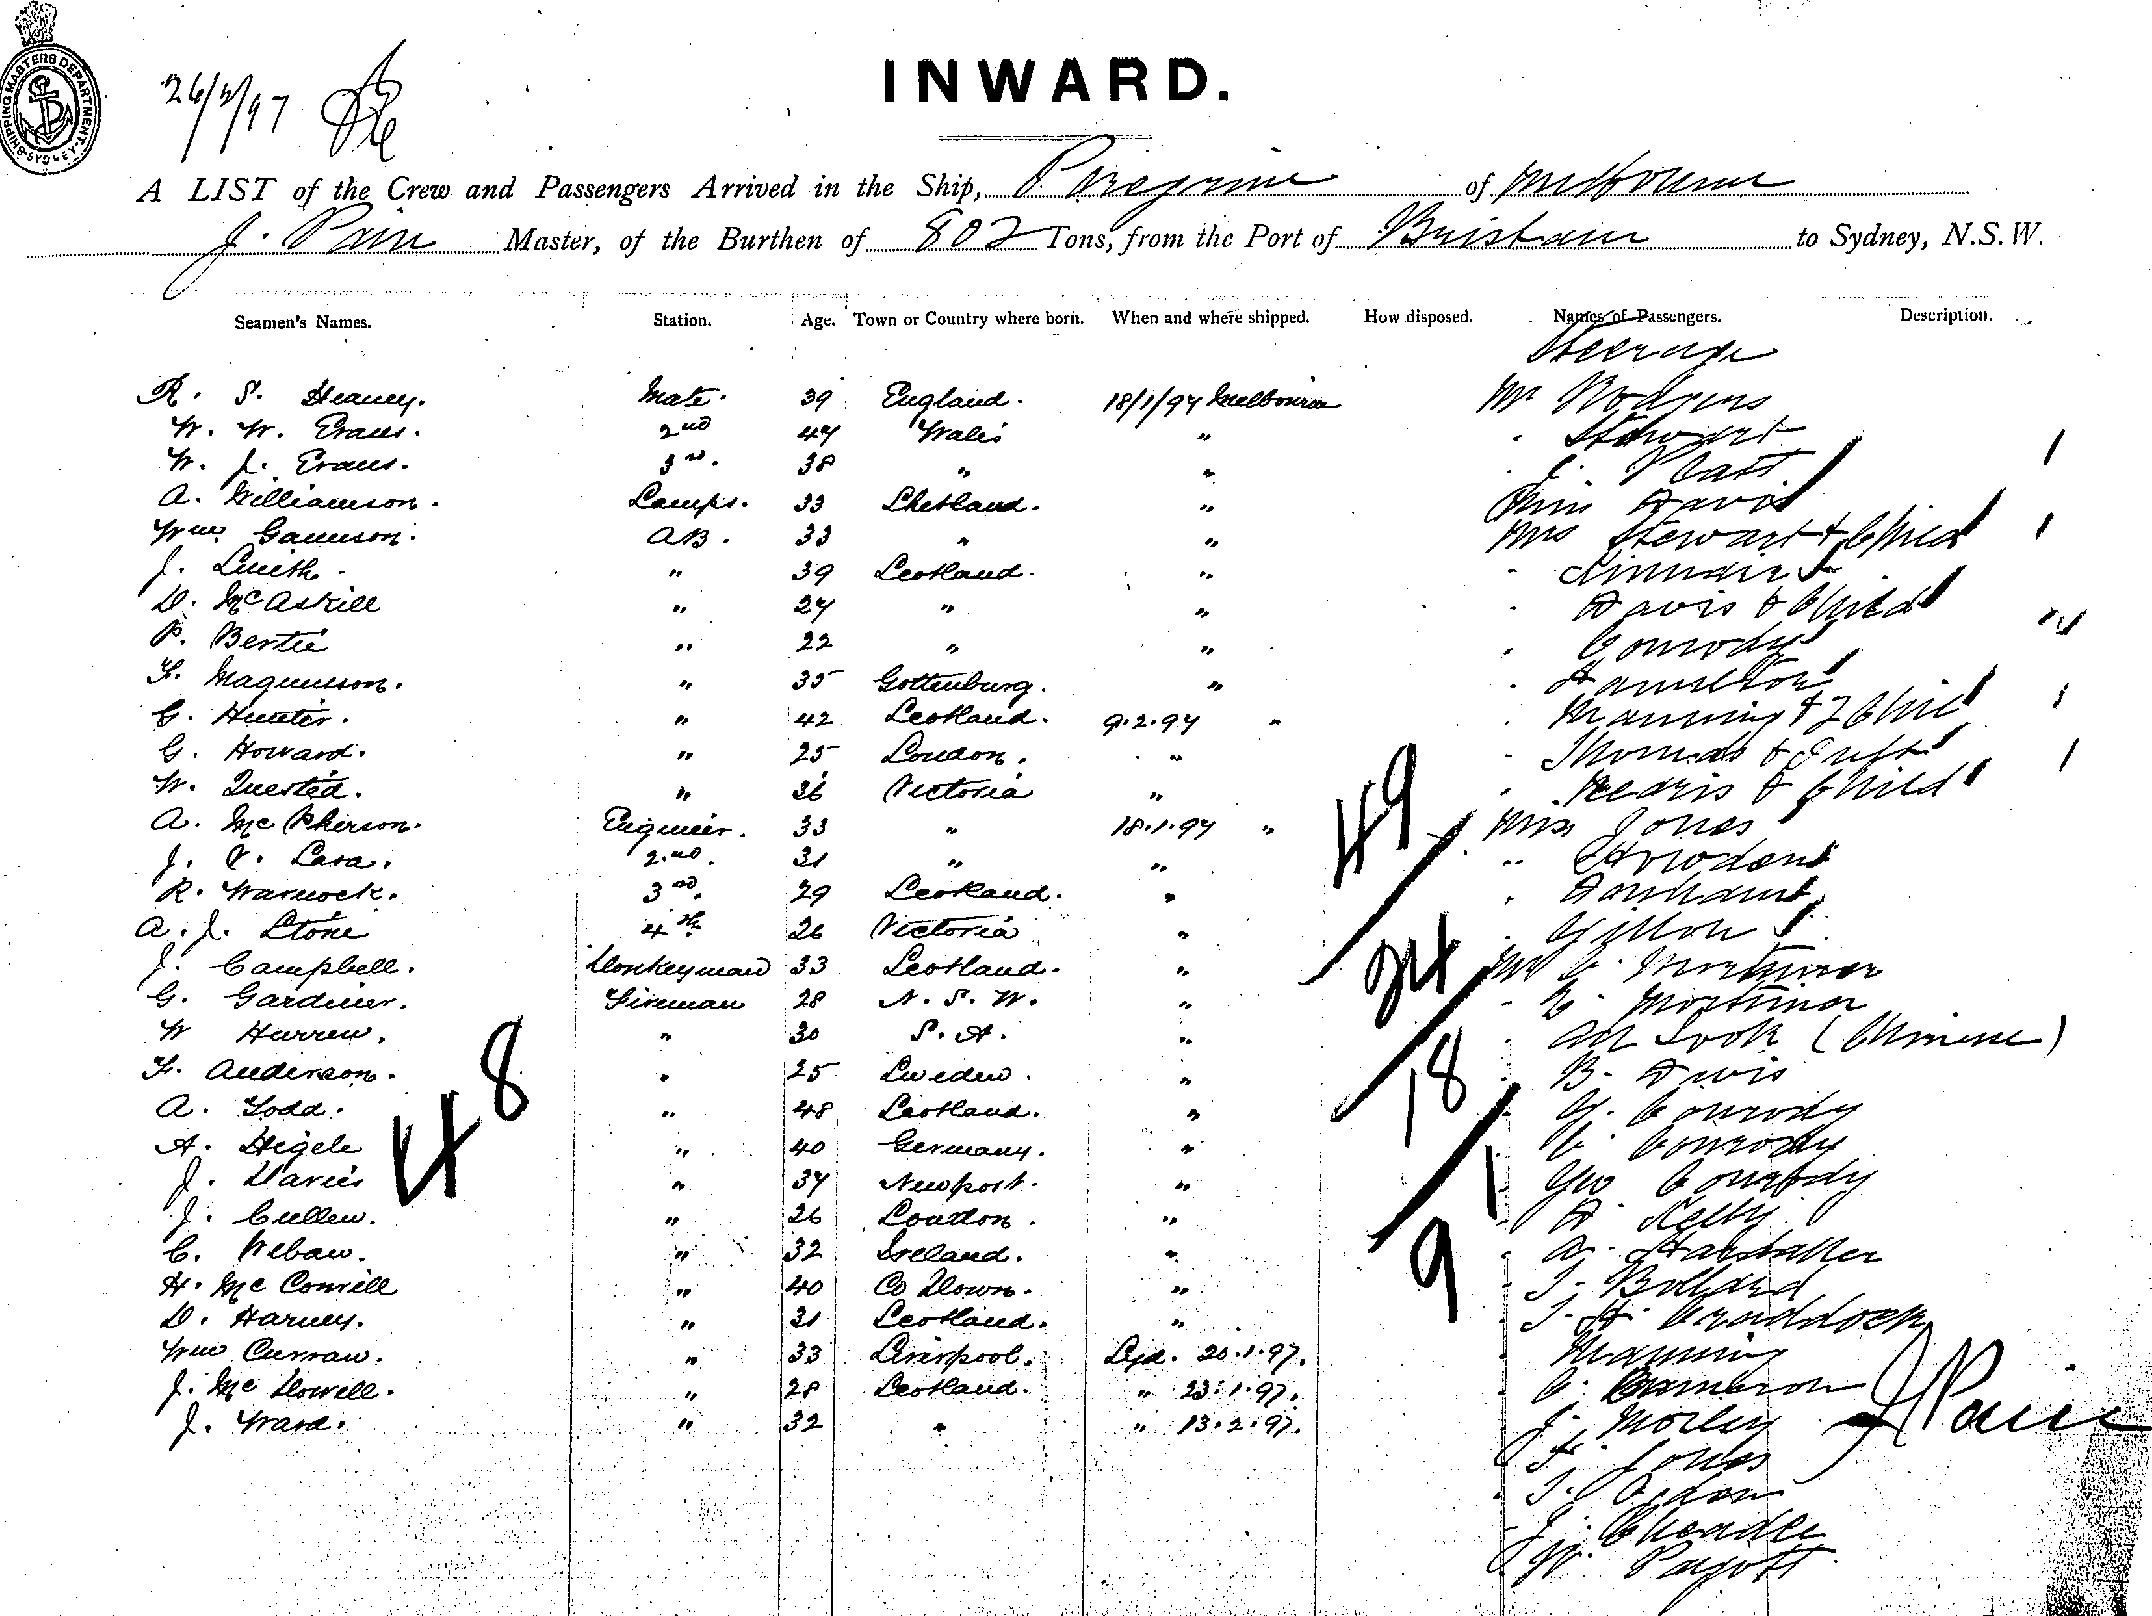 SHIPPING MASTERS DEPARTMENT SYDNEY
26/2/97
INWARD.
A LIST of the Crew and Passengers Arrived in the Ship, Peregrine of Melbourne
J. Pain Master, of the Burthen of 802 Tons, from the Port of Brisbane to Sydney, N.S.W.
Seamen's Names. Station. Age. Town or Country where born. When and where shipped. How disposed. Names of Passengers. Description.
Steerage
R. S. Heaney. Mate. 39 England. 18/1/97 Melbourne Mr Rodgers
W. W. Evans. 2nd 47 Wales " " Stewart
W. J. Evans. 3rd. 38 " " Platt
A. Williamson. Lamps. 33 Shetland. " Miss David
Wm Gammson. AB. 33 " " Mrs Stewart & Child
J. Smith. " 39 Scotland. "
D. McAskill " 27 " " Davis & Child
P. Bertie " 22 " " Conrody
F. Magnusson. " 35 Gottenburg. " Hamilton
G. Hunter. " 42 Scotland. 9.2.97 " Manning & 2 Chil
G. Howard. " 25 London. " Thomas & Inft
W. Quested. " 36 Victoria " & Child
A. McPherson. Engineer. 33 " 18.1.97 " Miss Jones
J. V. Lara. 2nd. 31 " " "
R. Warnock. 3rd. 29 Scotland. "
A. J. Stone 4th 26 Victoria " Gillon
J. Campbell. Donkeyman 33 Scotland. " Mr C. Mortimor
G. Gardiner. Fireman 28 N. S. W. " E. Mortimor
W Hurren. " 30 S. A. " Ah Sook (Chinese)
F. Anderson. " 25 Sweden. " B. Davis
A. Todd. " 48 Scotland. " G. Conrody
H. Higele " 40 Germany. " C. Conrody
J. Davies " 37 Newport. " Geo Conrody
J. Cullen. " 26 London. " H. Kelly
C. Weban. " 32 Ireland. " A.
H. McConvill " 40 Co Down. " T. Bollard
D. Harvey. " 31 Scotland. " T. H. Craddock
Wm Curran. " 33 Liverpool. Syd. 20.1.97. Manning
J. McDowell. " 28 Scotland. " 23.1.97. C. Cameron
J. Ward. " 32 " " 13.2.97. J. Morley
F. Jones
T.
J.
W. Pagott
48
49
24
18
1
9
J Pain